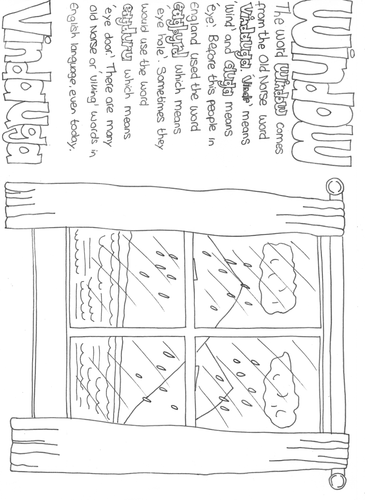 Window
The word window comes
from the Old Norse word
Vindauga. 'Vindr' means
'wind' and auga means
'eye'. Before this people in
England used the word
which means
'eye hole'. Sometimes they
would use the word
eagduru which means
'eye door'. There are many
Old Norse or 'Viking' words in
English language, even today.
Vindauga